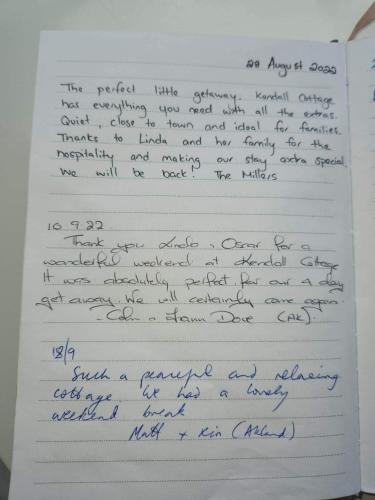 29 August 2022
The perfect little getaway. Kendall Cottage
has everything you need with all the extras.
Quiet, close to town and ideal for families.
Thanks to Linda and her family for the
hospitality and making our stay extra special.
We will be back! The Millers
10.9.22
Thank you Linda, Oscar for a
wonderful weekend at Kendall Cottage
It was absolutely perfect for our 4 day
get away. We will certainly come again.
- Colin & Dove (AK).
18/9
Such a peaceful and relaxing
cottage. We had a lovely
weekend break
Matt + Kin (Akland)